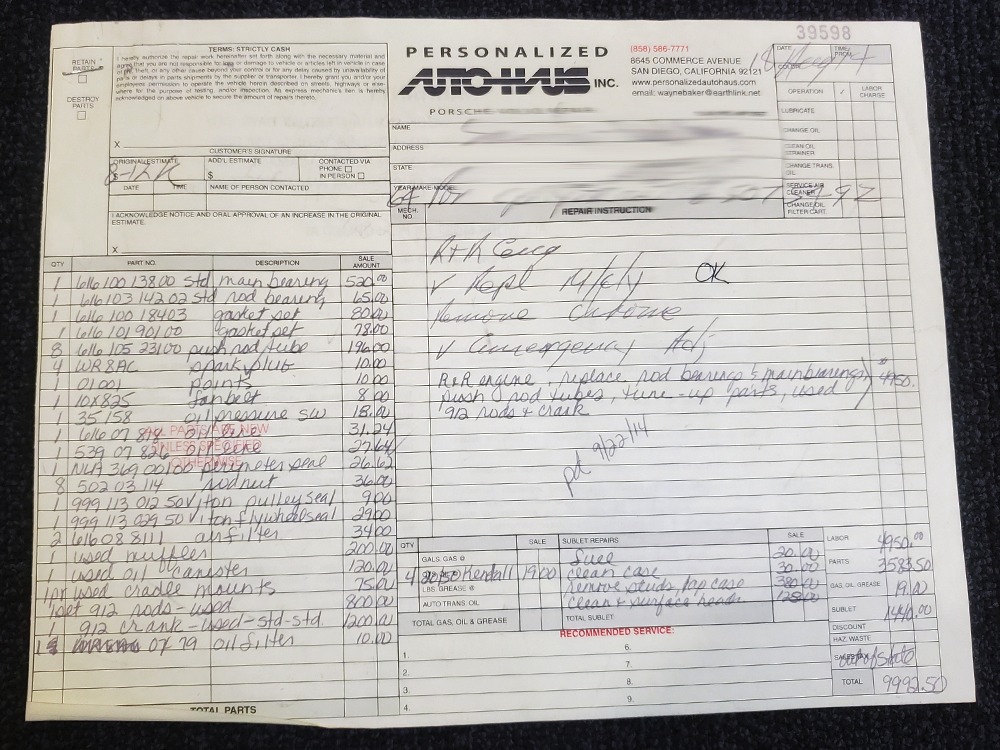 39598
TERMS: STRICTLY CASH
I hereby authorize the repair work hereinafter set forth along with the necessary material and
agree that you are not responsible for loss or damage to vehicle or articles left in vehicle in case
of fire, theft, or any other cause beyond your control or for any delay caused by unavailability of
parts or delays in parts shipments by the supplier or transporter. I hereby grant you and/or your
employees permission to operate the vehicle herein described on streets, highways or else-
where for the purpose of testing, and/or inspection. An express mechanic's lien is hereby
acknowledged on above vehicle to secure the amount of repairs thereto.
RETAIN PARTS
DESTROY PARTS
X
CUSTOMER'S SIGNATURE
ORIGINAL ESTIMATE
$
ADD'L ESTIMATE
$
CONTACTED VIA
PHONE
IN PERSON
DATE TIME NAME OF PERSON CONTACTED
I ACKNOWLEDGE NOTICE AND ORAL APPROVAL OF AN INCREASE IN THE ORIGINAL
ESTIMATE.
X
PERSONALIZED
AUTOHAUS INC.
PORSCHE
(858) 586-7771
8645 COMMERCE AVENUE
SAN DIEGO, CALIFORNIA 92121
www.personalizedautohaus.com
email: waynebaker@earthlink.net
NAME
ADDRESS
STATE
YEAR-MAKE-MODEL
64
MECH. NO.
REPAIR INSTRUCTION
DATE
OPERATION LABOR CHARGE
LUBRICATE
CHANGE OIL
CLEAN OIL STRAINER
CHANGE TRANS. OIL
SERVICE AIR CLEANER
CHANGE OIL FILTER CART.
QTY PART NO. DESCRIPTION SALE AMOUNT
1 616 100 138 00 std main bearing 520.00
1 616 103 142 02 std rod bearing 65.00
1 616 100 184 03 gasket set 80.00
1 616 101 901 00 gasket set 78.00
8 616 105 231 00 push rod tube 196.00
4 WR8AC spark plug 10.00
1 01 001 points 10.00
1 10X825 fan belt 8.00
1 35 158 oil pressure sw 18.00
1 616 07 818 oil line 31.24
1 539 07 826 oil line 27.64
1 NLA 369 001 00 perimeter seal 26.62
8 502 03 114 rod nut 36.00
1 999 113 012 50 viton pulley seal 9.00
1 999 113 029 50 viton flywheel seal 29.00
2 616 08 8111 air filter 34.00
1 used muffler 200.00
1 used oil cannister 120.00
1 pr used cradle mounts 75.00
1 set 912 rods - used 800.00
1 912 crank - used - std-std 1200.00
07 79 oil filter 10.00
ALL PARTS ARE NEW
UNLESS SPECIFIED
OTHERWISE
TOTAL PARTS
R+R Eng
✓ Repl OK
Remove chrome
✓ Emergency Adj
R&R engine, replace, rod bearings & main bearings, 4950.
push rod tubes, tune-up parts, used
912 rods & crank
pd 9/22/14
QTY SALE SUBLET REPAIRS SALE
GALS. GAS @ fuel 20.00
4 20/50 Kendall 19.00 clean case 30.00
LBS. GREASE @ remove studs, lap case
AUTO TRANS. OIL clean & surface heads
TOTAL GAS, OIL & GREASE TOTAL SUBLET
RECOMMENDED SERVICE:
1. 6.
2. 7.
3. 8.
4. 9.
LABOR 4950.00
PARTS 3583.50
GAS, OIL, GREASE 19.00
SUBLET 1440.00
DISCOUNT
HAZ. WASTE
SALES TAX out of state
TOTAL 9992.50